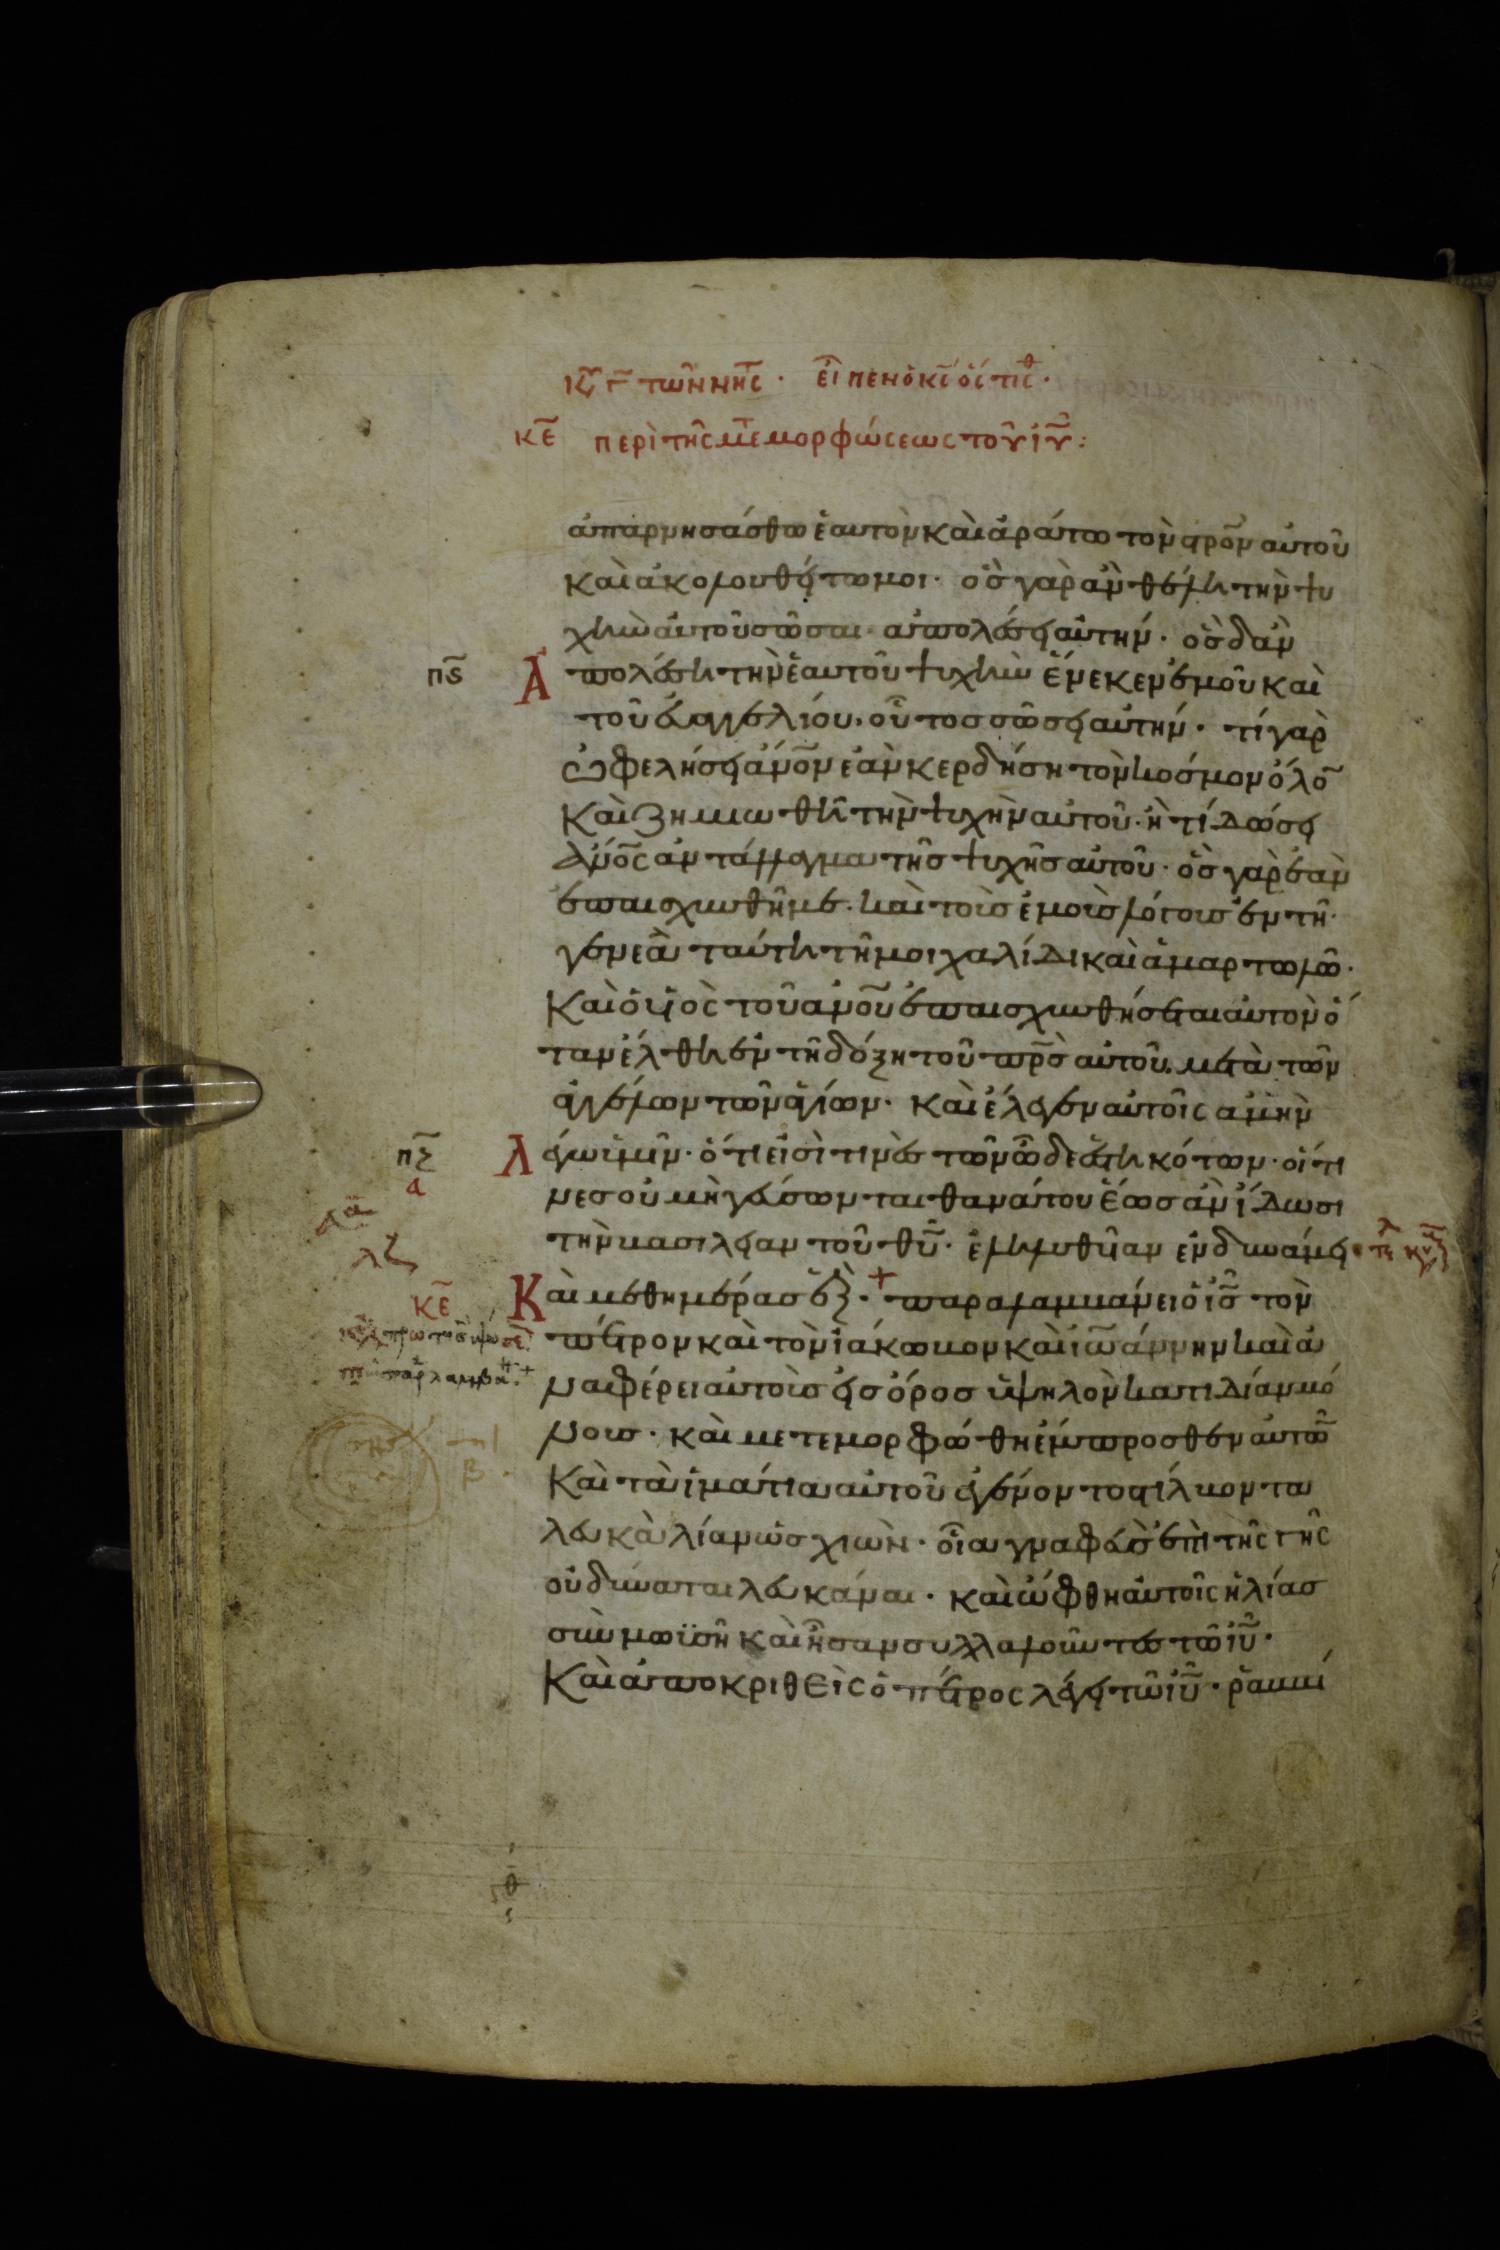 κε περὶ τῆς μετμορφώσεως τοῦ ἰῦ:
ἀπαρνησάσθω ἑαυτὸν καὶ ἀράτω τὸν σρον αὐτοῦ
καὶ ἀκολουθείτω μοι· ὃς γὰρ ἂν θέλη τὴν ψυ
χὴν αὐτοῦ σῶσαι· ἀπολέσει αὐτήν· ὃς δ' ἂν
πς Ἀπολέση τὴν ἑαυτοῦ ψυχὴν ἕνεκεν ἐμοῦ καὶ
τοῦ εὐαγγελίου, οὗτος σώσει αὐτήν· τί γὰρ
ὠφελήσει ἀνον ἐὰν κερδήση τὸν κόσμον ὅλο
καὶ ζημιωθῆ τὴν ψυχὴν αὐτοῦ· ἢ τί δώσει
ἀνος ἀντάλλαγμα τῆς ψυχῆς αὐτοῦ· ὃς γὰρ ἐὰν
ἐπαισχυνθῆ με· καὶ τοὺς ἐμοὺς λόγους ἐν τῆ
γενεᾶ ταύτη τῆ μοιχαλίδι καὶ ἁμαρτωλῶ·
καὶ ὁ υἱὸς τοῦ ἀνου ἐπαισχυνθήσεται αὐτὸν ὅ
ταν ἔλθη ἐν τῆ δόξη τοῦ πρς αὐτοῦ μετὰ τῶν
ἀγγέλων τῶν ἁγίων· καὶ ἔλεγεν αὐτοῖς ἀμὴν
πζ Λέγω ὑμῖν· ὅτι εἰσὶ τινὲς τῶν ὧδε ἑστηκότων· οἵτι
νες οὐ μὴ γεύσωνται θανάτου ἕως ἂν ἴδωσι
τὴν βασιλείαν τοῦ θυ· ἐληλυθῖαν ἐν δυνάμει
κε Καὶ μεθ' ημέρας ἓξ· παραλαμβάνει ὁ ἰς τὸν
πέτρον καὶ τὸν ἰάκωβον καὶ ἰωάννην καὶ ἀ
ναφέρει αὐτοὺς εἰς ὄρος ὑψηλὸν κατιδίαν μό
νους· καὶ μετεμορφώθη ἔμπροσθεν αὐτῶ
καὶ τὰ ἱμάτια αὐτοῦ ἐγένοντο στίλβοντα
λευκὰ λίαν ὡς χιών· οἷα γναφεὺς ἐπὶ τῆς γῆς
οὐ δύναται λευκάναι· καὶ ὤφθη αὐτοῖς ἠλίας
σὺν μωϋσῆ καὶ ἦσαν συλλαλοῦντες τῶ ἰυ·
Καὶ ἀποκριθεὶς ὁ πέτρος λέγει τῶ ἰυ· ῥαββί